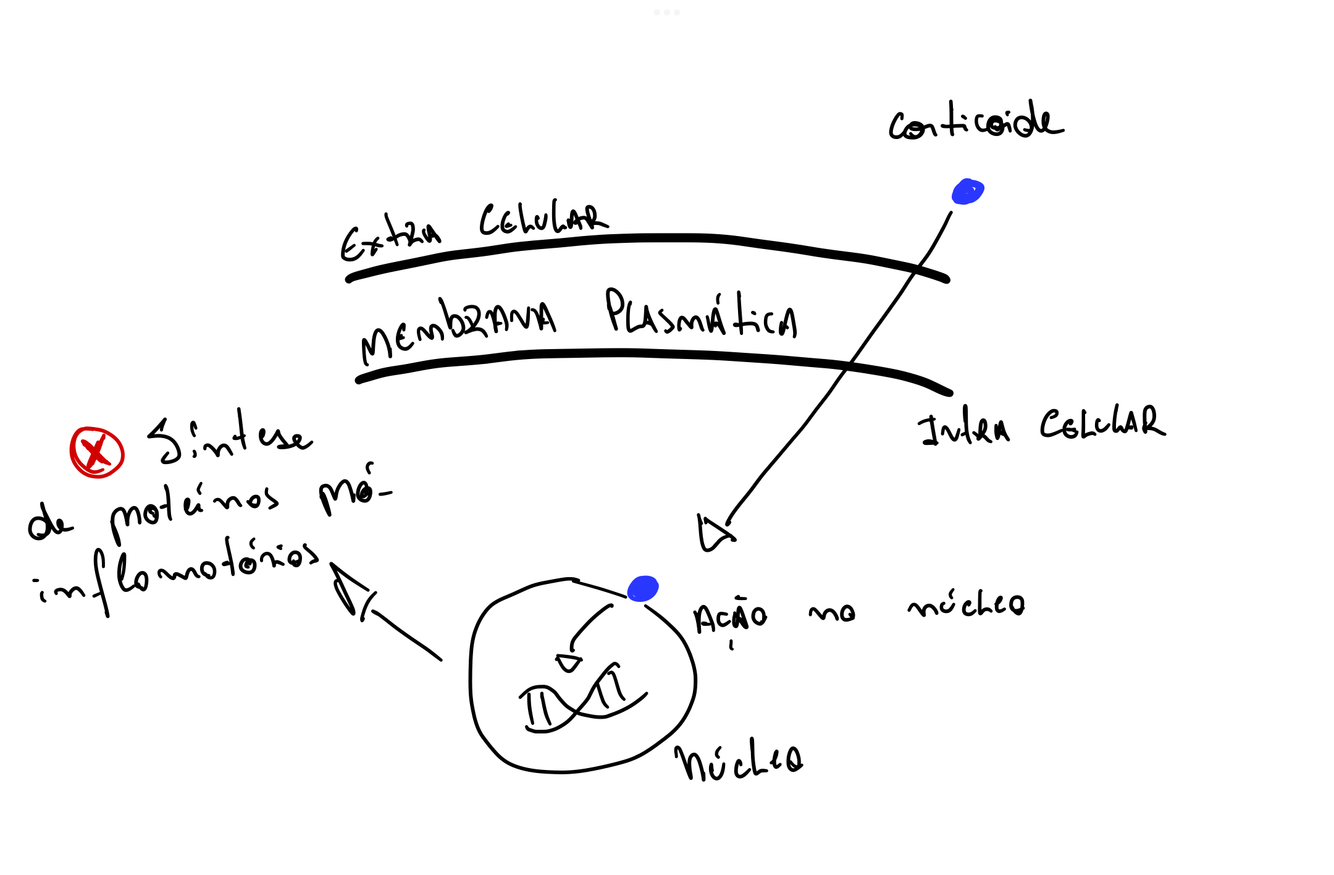 corticoide
Extra Celular
Membrana Plasmática
Intra Celular
X Síntese
de proteínas pró-
inflamatórias
Ação no núcleo
Núcleo